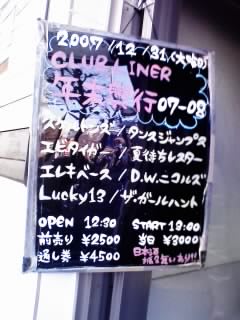 2007/12/31(大晦日)
CLUB LINER
年末
行07-08
/ダンスジャンプス
エビタイガー/夏待ちレスター
エレキベース/D.W.ニコルズ
Lucky13/ザ・ガールハント
OPEN 12:30 START 13:00
前売り ¥2500 当日 ¥3000
通し券 ¥4500 日本酒
振る舞いあり!!